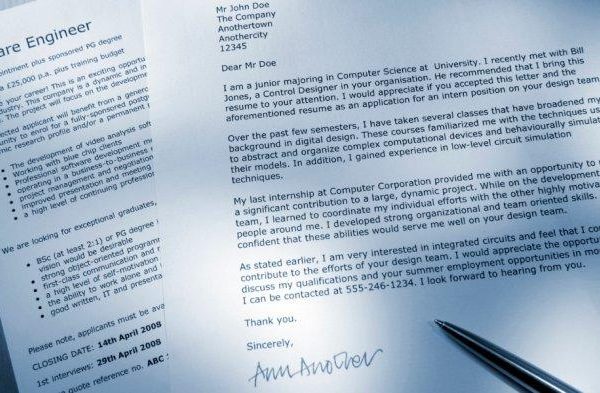 are Engineer
ointment plus sponsored PG degree
£25,000 p.a. plus training budget
your career! This is an exciting
This company is a dynamic and
The project will focus on the development
candidate will benefit from a
to enrol for a fully-sponsored
research profile and/or a permanent
The development of video analysis
Working with blue chip clients
Professional software development
operating in a business-to-business
project management and
improved presentation and meeting
a high level of continuing
We are looking for exceptional graduates,
BSc (at least 2:1) or PG degree
vision would be desirable
strong object-oriented
first-class communication and
a high level of self-motivation
the ability to work alone and
good written, IT and
Please note, applicants must be
CLOSING DATE: 14th April 2008
1st interviews: 29th April 2008
quote reference no. ABC
Mr John Doe
The Company
Anothertown
Anothercity
12345
Dear Mr Doe
I am a junior majoring in Computer Science at University. I recently met with Bill
Jones, a Control Designer in your organisation. He recommended that I bring this
resume to your attention. I would appreciate if you accepted this letter and the
aforementioned resume as an application for an intern position on your design team
Over the past few semesters, I have taken several classes that have broadened my
background in digital design. These courses familiarized me with the techniques
to abstract and organize complex computational devices and behaviourally
their models. In addition, I gained experience in low-level circuit simulation
techniques.
My last internship at Computer Corporation provided me with an opportunity to
a significant contribution to a large, dynamic project. While on the development
team, I learned to coordinate my individual efforts with the other highly
people around me. I developed strong organizational and team oriented skills.
confident that these abilities would serve me well on your design team.
As stated earlier, I am very interested in integrated circuits and feel that I
contribute to the efforts of your design team. I would appreciate the
discuss my qualifications and your summer employment opportunities in
I can be contacted at 555-246-1234. I look forward to hearing from you.
Thank you.
Sincerely,
Ann Another